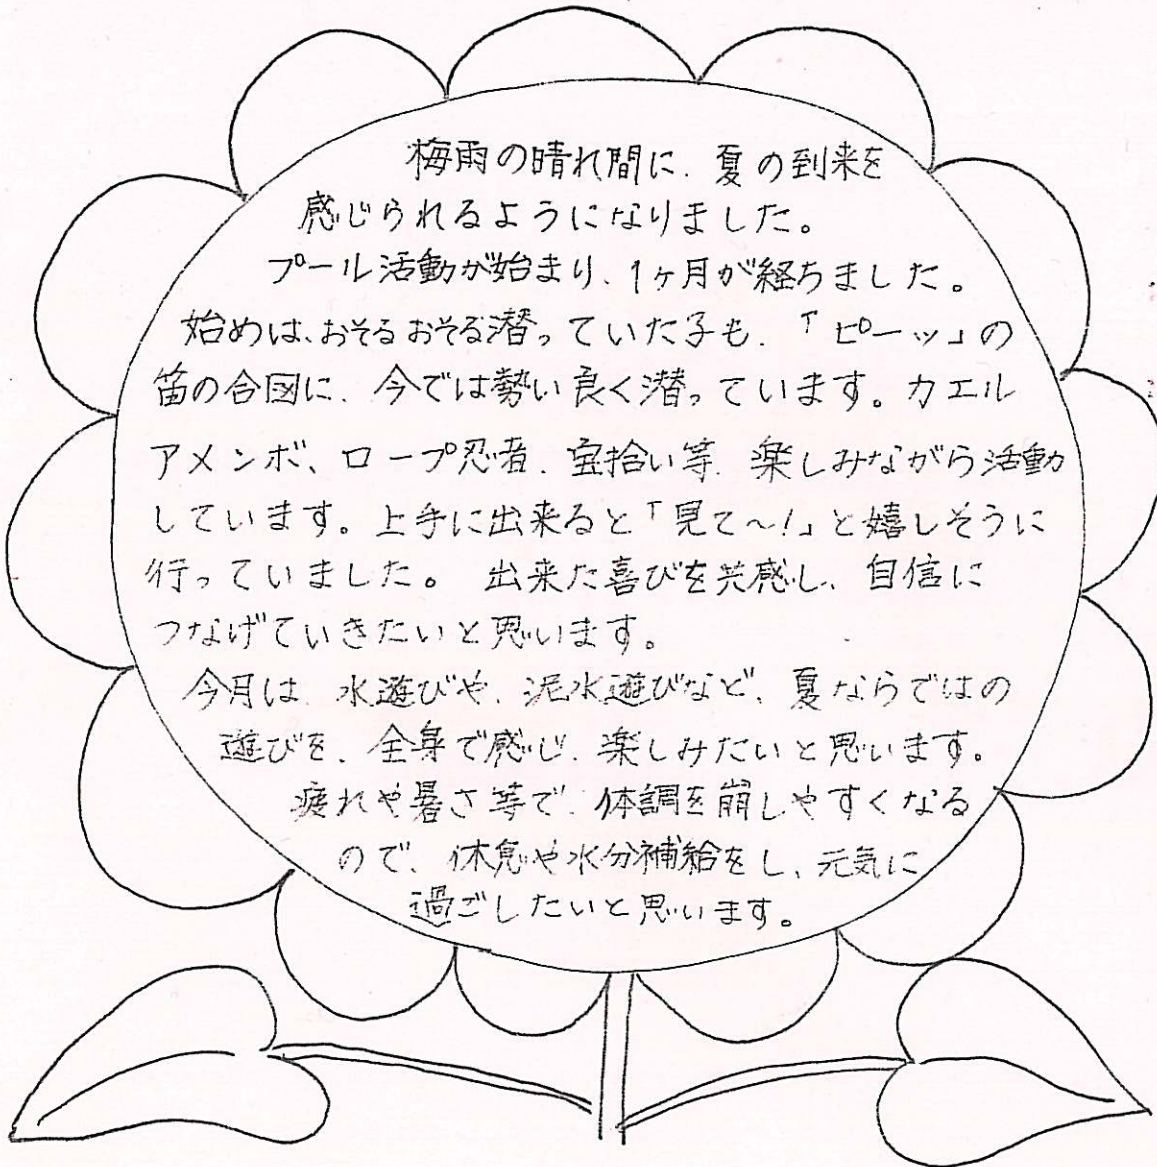 梅雨の晴れ間に、夏の到来を
感じられるようになりました。
プール活動が始まり、1ヶ月が経ちました。
始めは、おそるおそる潜っていた子も、「ピーッ」の
笛の合図に、今では勢い良く潜っています。カエル
アメンボ、ロープ忍者、宝拾い等、楽しみながら活動
しています。上手に出来ると「見て〜!」と嬉しそうに
行っていました。 出来た喜びを共感し、自信に
つなげていきたいと思います。
今月は、水遊びや、泥水遊びなど、夏ならではの
遊びを、全身で感じ、楽しみたいと思います。
疲れや暑さ等で、体調を崩しやすくなる
ので、休息や水分補給をし、元気に
過ごしたいと思います。